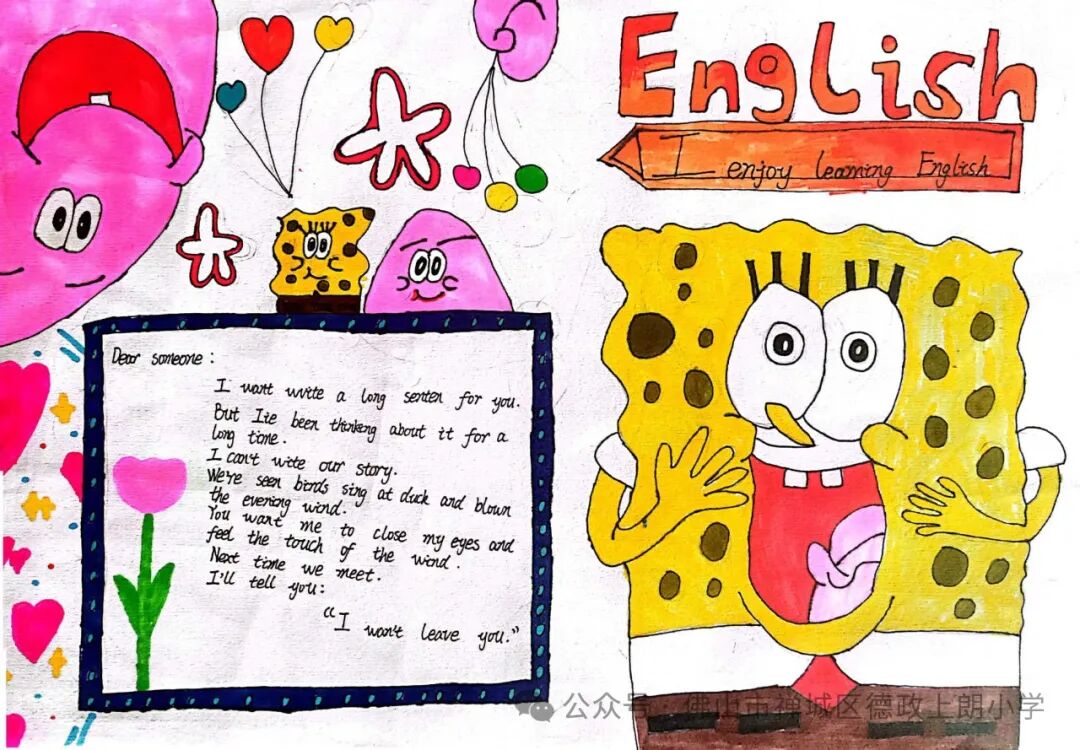 English
I enjoy learning English
Dear someone:
I want write a long senten for you.
But I've been thinking about it for a
long time.
I can't write our story.
We're seen birds sing at duck and blown
the evening wind.
You want me to close my eyes and
feel the touch of the wind.
Next time we meet.
I'll tell you:
"I won't leave you."
公众号·佛山市禅城区德政上朗小学